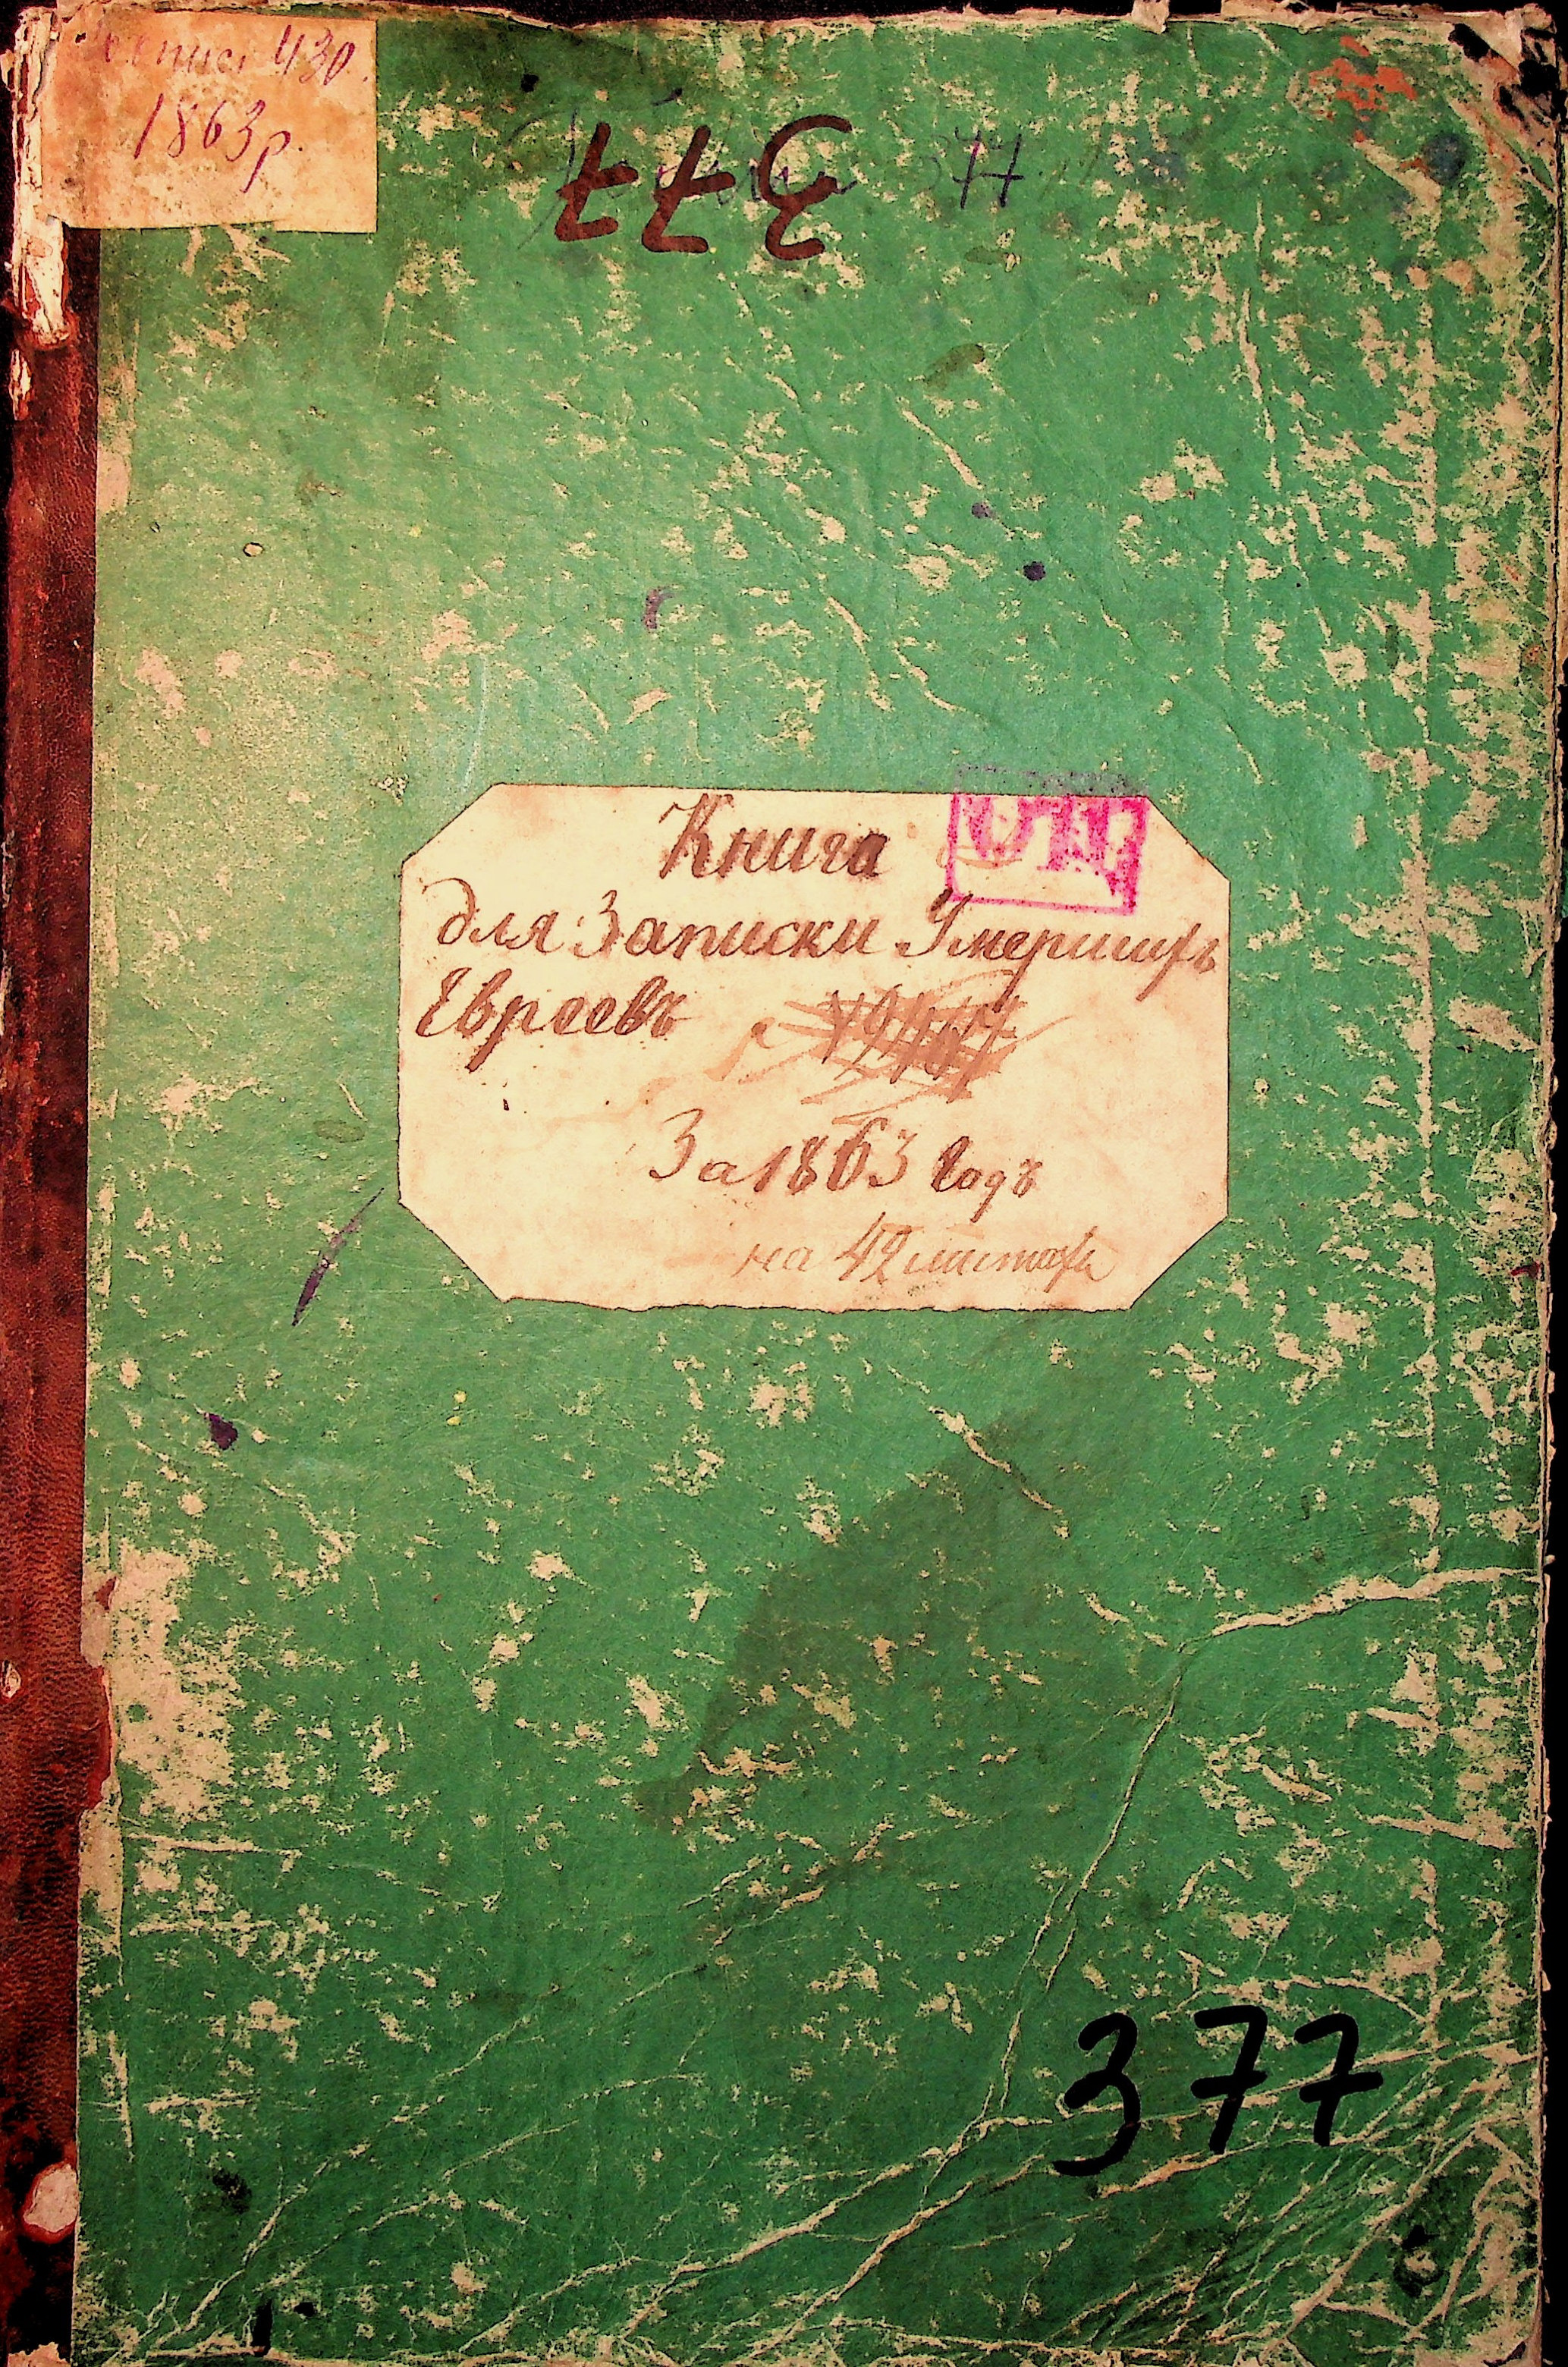 430.
1863р.
377
Книга
для Записки Умершихъ
Евреевъ
За 1863 Годъ
на 42 листахъ
377